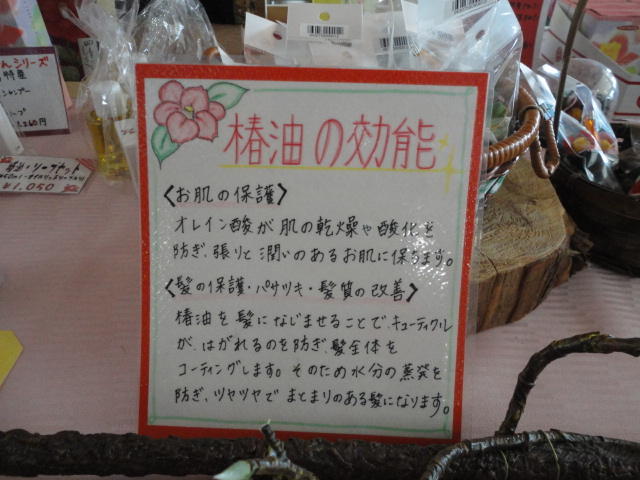 椿油の効能
〈お肌の保護〉
オレイン酸が肌の乾燥や酸化を
防ぎ、張りと潤いのあるお肌に保ちます。
〈髪の保護・パサツキ・髪質の改善〉
椿油を髪になじませることで、キューティクル
が、はがれるのを防ぎ、髪全体を
コーティングします。そのため水分の蒸発を
防ぎ、ツヤツヤでまとまりのある髪になります。
シリーズ
特産
シャンプー
¥1,050